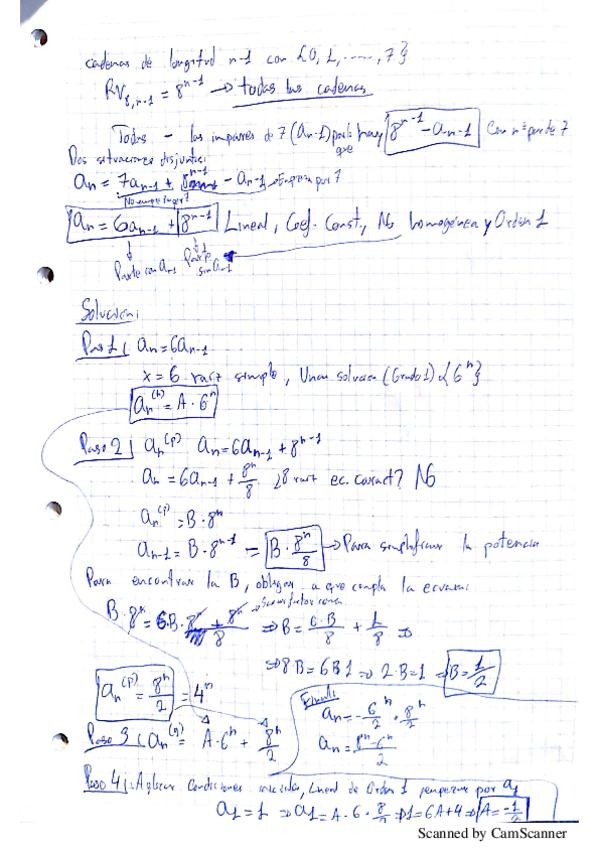 cadenas de longitud n-1 con {0, 1, ......, 7}
RV8,n-1 = 8^n-1 → todas las cadenas
Todas - los impares de 7 (an-1) por lo que hay 8^n-1 - an-1 Con nº par de 7
Dos situaciones disjuntas:
an = 7an-1 + 8^n-1 - an-1 → Empieza por 7
No empieza por 7
an = 6an-1 + 8^n-1 Lineal, Coef. Const., No homogénea y Orden 1
Parte con an-1 Parte sin an-1
Solución:
Paso 1 an = 6an-1
x = 6 raíz simple, Una solución (Grado 1) {6^n}
an^(h) = A · 6^n
Paso 2 an^(p) an = 6an-1 + 8^n-1
an = 6an-1 + 8^n/8 ¿8 raíz ec. caract? NO
an^(p) = B · 8^n
an-1 = B · 8^n-1 = B · 8^n/8 → Para simplificar la potencia
Para encontrar la B, obligar a que cumpla la
B · 8^n = 6B · 8^n/8 + 8^n/8 ⇒ B = 6B/8 + 1/8 ⇒
⇒ 8B = 6B 1 ⇒ 2·B = 1 ⇒ B = 1/2
an^(p) = 8^n/2 = 4^n
an = -6^n/2 + 8^n/2
an = 8^n-6^n/2
Paso 3 A · 6^n + 8^n/2
Paso 4: Aplicar Condiciones iniciales, Lineal de Orden 1 empezar por a1
a1 = 1 ⇒ a1 = A · 6 · 8/2 ⇒ 1 = 6A + 4 ⇒ A = -1/2
Scanned by CamScanner